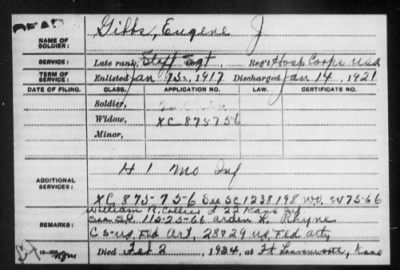 NAME OF SOLDIER: Gibbs, Eugene J
SERVICE: Late rank, Staff Sgt, Reg't Hosp Corps USA
TERM OF SERVICE: Enlisted Jan 15, 1917 Discharged Jan 14, 1921
DATE OF FILING. CLASS. APPLICATION NO. LAW. CERTIFICATE NO.
Soldier,
Widow, XC 875756
Minor,
ADDITIONAL SERVICES: H 1 Mo Inf
XC 875-75-6 See SC 1238198 WO
William R. Collins
REMARKS: Arden H. Rhyne
C 5-US, Fed Art, 28929 US, Fed Art,
Died Feb 2, 1934, at Ft Leavenworth, Kans